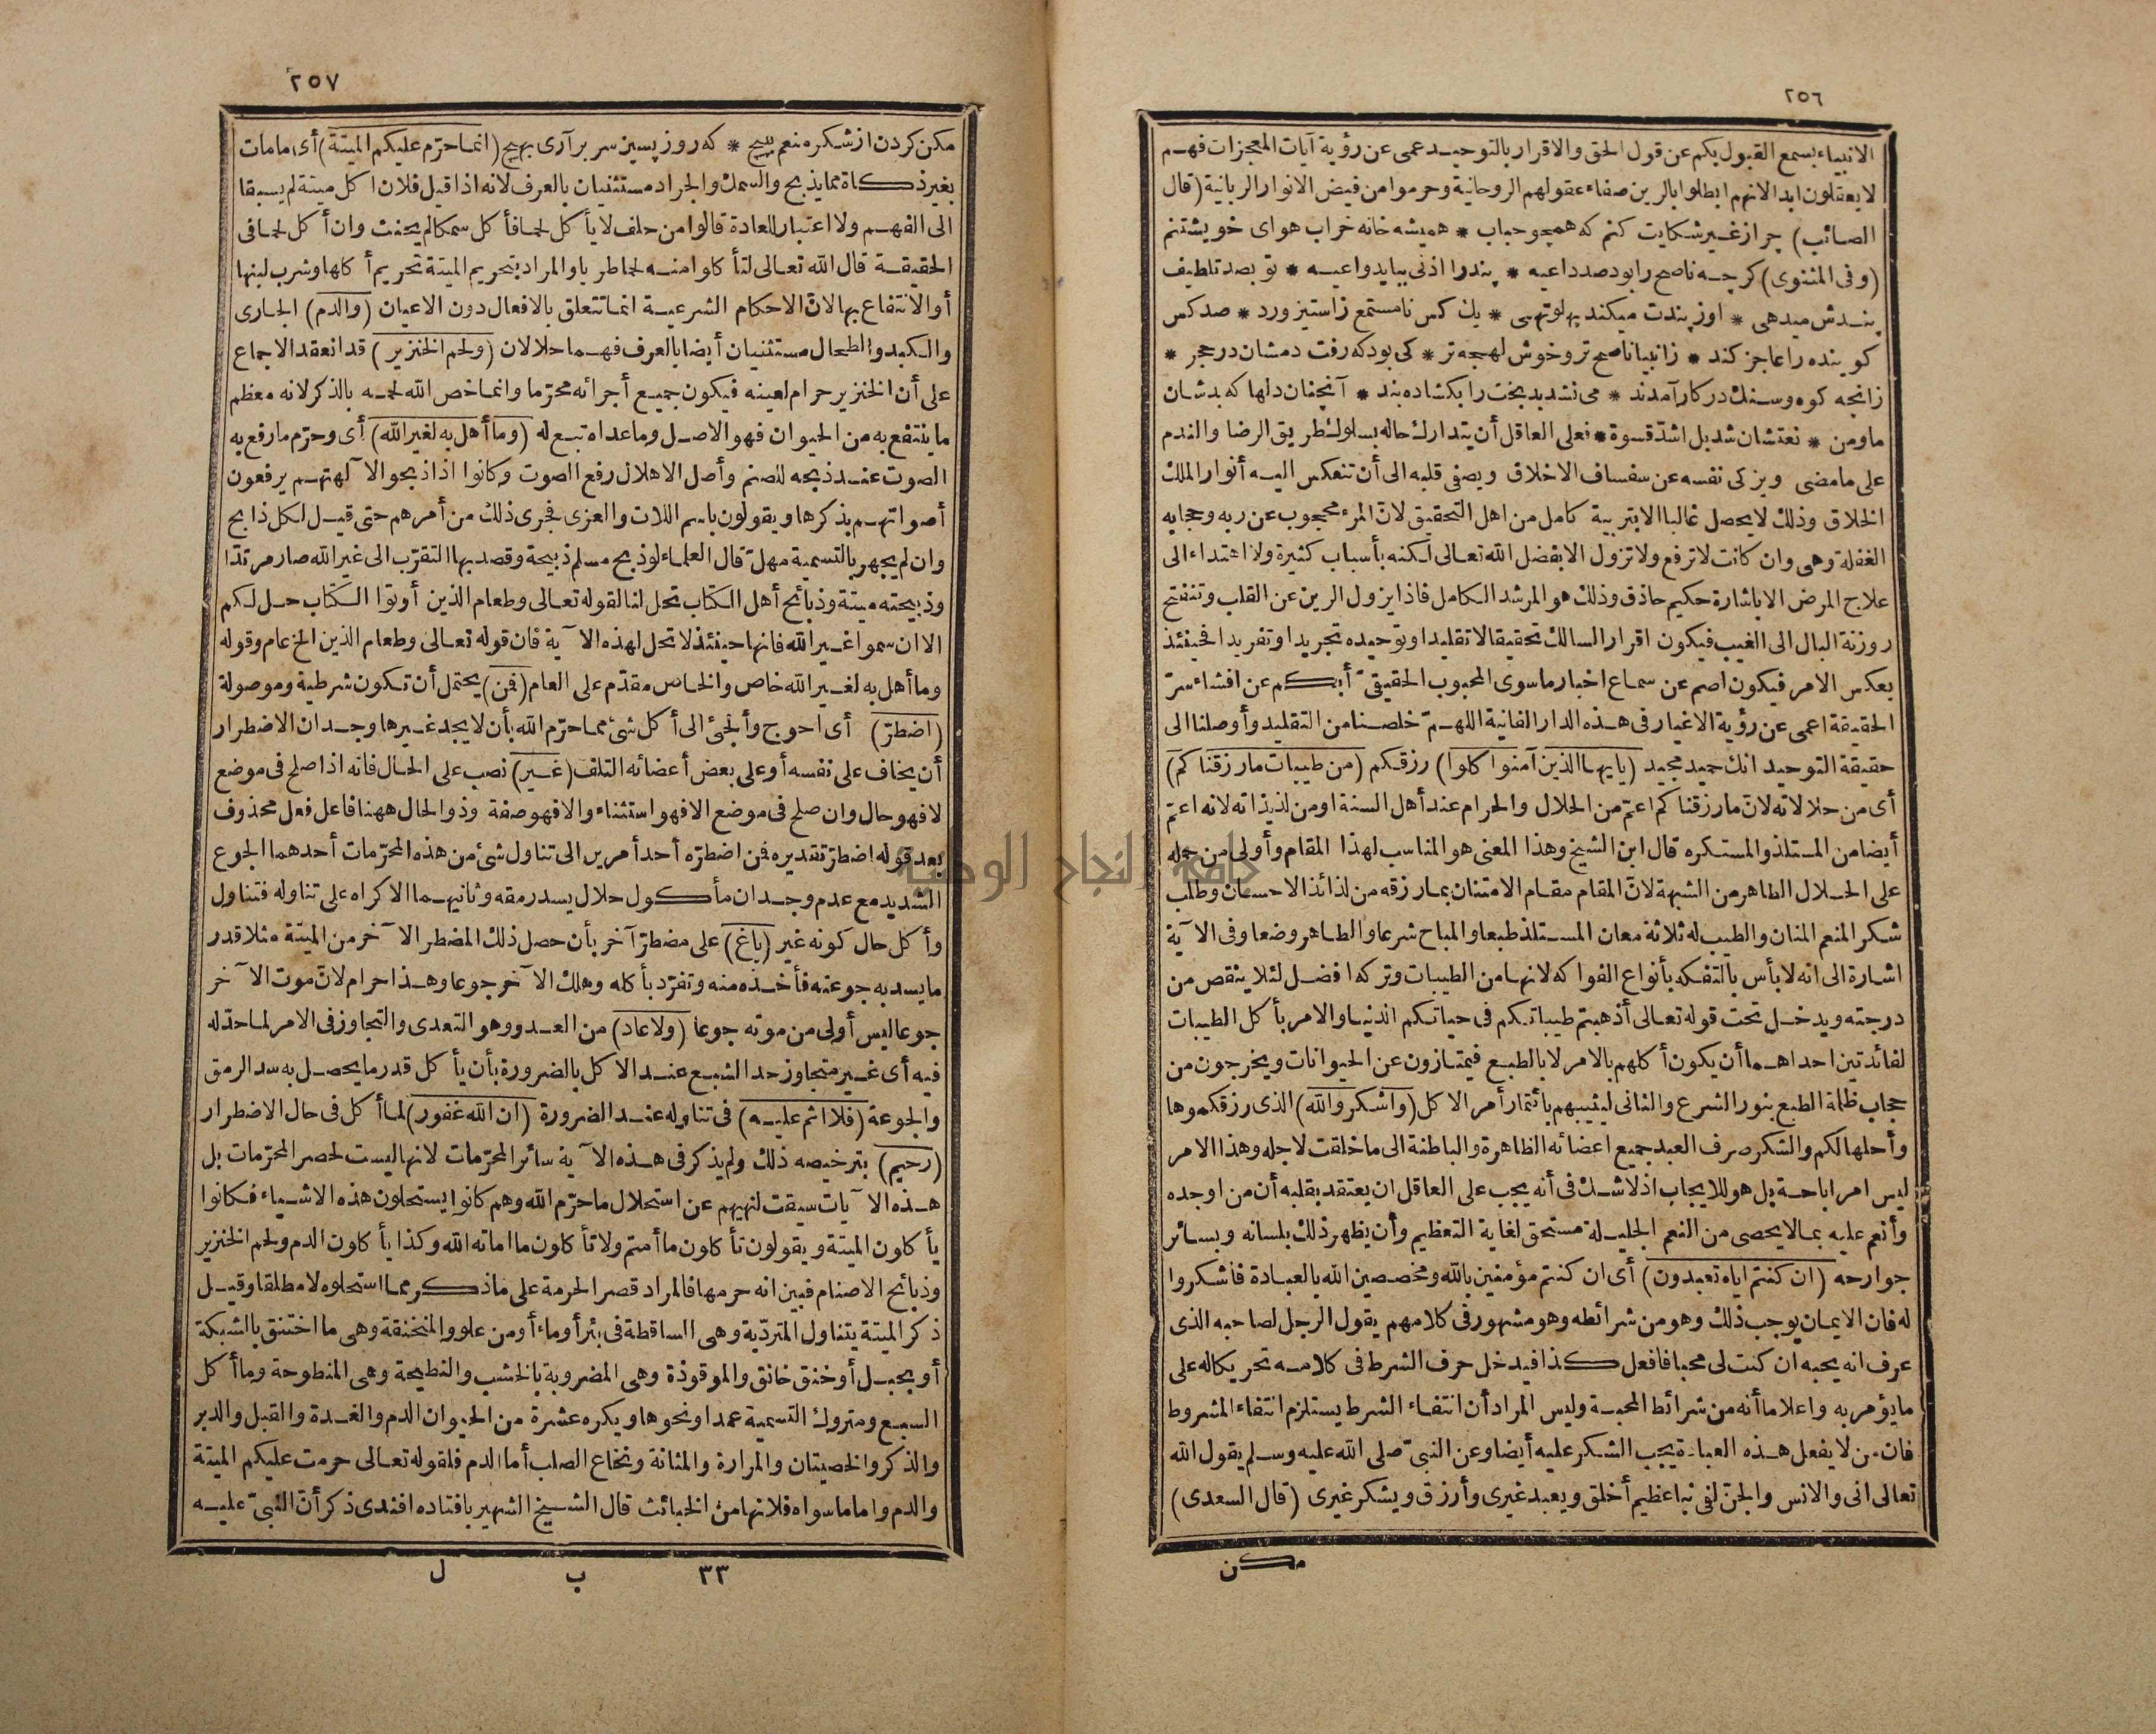 ٢٥٦
الانبياء بسمع القبول بكم عن قول الحق والاقرار بالتوحيد عمى عن رؤية آيات المعجزات فهم
لا يعقلون ابدا لانهم ابطلوا بالرين صفاء عقولهم الروحانية وحرموا من فيض الانوار الربانية (قال
الصائب) چرا ز غير شكايت كنم كه همچو حباب * هميشه خانه خراب هواى خويشتنم
(وفى المثنوى) كرچه ناصح را بود صد داعيه * پند را اذنى ببايد واعيه * تو بصد تلطيف
پندش ميدهى * او ز پندت ميكند پهلو تهى * يك كس نامستمع ز استيز ورد * صد كس
كوينده را عاجز كند * ز انبيا ناصح تر و خوش لهجه تر * كى بود كه رفت دمشان در حجر *
زانچه كوه وسنك در كار آمدند * مى نشد بدبخت را بكشاده بند * آنچنان دلها كه بدشان
ما ومن * نعتشان شد بل اشدّ قسوة * فعلى العاقل أن يتدارك حاله بسلوك طريق الرضا والندم
على ما مضى ويزكى نفسه عن سفساف الاخلاق ويصفى قلبه الى أن تنعكس اليه أنوار الملك
الخلاق وذلك لا يحصل غالبا الا بتربية كامل من اهل التحقيق لانّ المرء محجوب عن ربه وحجابه
الغفلة وهى وان كانت لا ترفع ولا تزول الا بفضل الله تعالى لكنه بأسباب كثيرة ولا اهتداء الى
علاج المرض الا باشارة حكيم حاذق وذلك هو المرشد الكامل فاذا يزول الرين عن القلب وتنفتح
روزنة البال الى الغيب فيكون اقرار السالك تحقيقا لا تقليدا وتوحيده تجريدا وتفريدا فحينئذ
يعكس الامر فيكون اصم عن سماع اخبار ما سوى المحبوب الحقيقىّ أبكم عن افشاء سرّ
الحقيقة اعمى عن رؤية الاغيار فى هذه الدار الفانية اللهمّ خلصنا من التقليد وأوصلنا الى
حقيقة التوحيد انك حميد مجيد (يا يها الذين آمنوا كلوا) رزقكم (من طيبات ما رزقنا كم)
أى من حلالاته لانّ ما رزقنا كم اعمّ من الحلال والحرام عند أهل السنة او من لذيذاته لانه اعمّ
أيضا من المستلذ والمستكره قال ابن الشيخ وهذا المعنى هو المناسب لهذا المقام وأولى من حمله
على الحلال الطاهر من الشبهة لانّ المقام مقام الامتنان بما رزقه من لذائذ الاحسان وطلب
شكر المنعم المنان والطيب له ثلاثة معان المستلذ طبعا والمباح شرعا والطاهر وضعا وفى الآية
اشارة الى انه لا بأس بالتفكه بأنواع الفواكه لانها من الطيبات وتركه افضل لئلا ينقص من
درجته ويدخل تحت قوله تعالى أذهبتم طيباتكم فى حياتكم الدنيا والامر بأكل الطيبات
لفائدتين احداهما أن يكون أكلهم بالامر لا بالطبع فيمتازون عن الحيوانات ويخرجون من
حجاب ظلمة الطبع بنور الشرع والثانى ليثيبهم بائتمار أمر الاكل (واشكروا لله) الذى رزقكموها
وأحلها لكم والشكر صرف العبد جميع اعضائه الظاهرة والباطنة الى ما خلقت لاجله وهذا الامر
ليس امر اباحة بل هو للايجاب اذ لا شك فى أنه يجب على العاقل ان يعتقد بقلبه أن من اوجده
وأنعم عليه بما لا يحصى من النعم الجليلة مستحق لغاية التعظيم وأن يظهر ذلك بلسانه وبسائر
جوارحه (ان كنتم اياه تعبدون) أى ان كنتم مؤمنين بالله ومخصصين الله بالعبادة فاشكروا
له فان الايمان يوجب ذلك وهو من شرائطه وهو مشهور فى كلامهم يقول الرجل لصاحبه الذى
عرف انه يحبه ان كنت لى محبا فافعل كذا فيدخل حرف الشرط فى كلامه تحريكا له على
ما يؤمر به واعلاما أنه من شرائط المحبة وليس المراد أن انتفاء الشرط يستلزم انتفاء المشروط
فان من لا يفعل هذه العبادة يجب الشكر عليه أيضا وعن النبىّ صلى الله عليه وسلم يقول الله
تعالى انى والانس والجنّ لفى نبا عظيم أخلق ويعبد غيرى وأرزق ويشكر غيرى (قال السعدى)
مكن
٢٥٧
مكن كردن از شكر منعم مپيچ * كه روز پسين سر بر آرى بهيچ (انما حرّم عليكم الميتة) أى ما مات
بغير ذكاة مما يذبح والسمك والجراد مستثنيان بالعرف لانه اذا قيل فلان اكل ميتة لم يسبقا
الى الفهم ولا اعتبار للعادة قالوا من حلف لا يأكل لحما فأكل سمكا لم يحنث وان أكل لحما فى
الحقيقة قال الله تعالى لتأكلوا منه لحما طريا والمراد بتحريم الميتة تحريم أكلها وشرب لبنها
أو الانتفاع بها لانّ الاحكام الشرعية انما تتعلق بالافعال دون الاعيان (والدم) الجارى
والكبد والطحال مستثنيان أيضا بالعرف فهما حلالان (ولحم الخنزير) قد انعقد الاجماع
على أن الخنزير حرام لعينه فيكون جميع أجزائه محرّما وانما خص الله لحمه بالذكر لانه معظم
ما ينتفع به من الحيوان فهو الاصل وما عداه تبع له (وما أهل به لغير الله) أى وحرّم ما رفع به
الصوت عند ذبحه للصنم وأصل الاهلال رفع الصوت وكانوا اذا ذبحوا لآلهتهم يرفعون
أصواتهم بذكرها ويقولون باسم اللات والعزى فجرى ذلك من أمرهم حتى قيل لكل ذابح
وان لم يجهر بالتسمية مهلّ قال العلماء لو ذبح مسلم ذبيحة وقصد بها التقرّب الى غير الله صار مرتدّا
وذبيحته ميتة وذبائح أهل الكتاب تحل لنا لقوله تعالى وطعام الذين أوتوا الكتاب حل لكم
الا ان سموا غير الله فانها حينئذ لا تحل لهذه الآية فان قوله تعالى وطعام الذين الخ عام وقوله
وما أهل به لغير الله خاص والخاص مقدّم على العام (فمن) يحتمل أن تكون شرطية وموصولة
(اضطرّ) أى احوج وألجئ الى أكل شئ مما حرّم الله بأن لا يجد غيرها وجدان الاضطرار
أن يخاف على نفسه أو على بعض أعضائه التلف (غير) نصب على الحال فانه اذا صلح فى موضع
لا فهو حال وان صلح فى موضع الا فهو استثناء والا فهو صفة وذو الحال ههنا فاعل فعل محذوف
بعد قوله اضطرّ تقديره فمن اضطرّه أحد أمرين الى تناول شئ من هذه المحرّمات أحدهما الجوع
الشديد مع عدم وجدان مأكول حلال يسد رمقه وثانيهما الاكراه على تناوله فتناول
وأكل حال كونه غير (باغ) على مضطرّ آخر بأن حصل ذلك المضطر الآخر من الميتة مثلا قدر
ما يسد به جوعته فأخذه منه وتفرّد بأكله وهلك الآخر جوعا وهذا حرام لانّ موت الآخر
جوعا ليس أولى من موته جوعا (ولا عاد) من العدو وهو التعدى والتجاوز فى الامر لما حدّ له
فيه أى غير متجاوز حد الشبع عند الاكل بالضرورة بأن يأكل قدر ما يحصل به سد الرمق
والجوعة (فلا اثم عليه) فى تناوله عند الضرورة (ان الله غفور) لما أكل فى حال الاضطرار
(رحيم) بترخيصه ذلك ولم يذكر فى هذه الآية سائر المحرّمات لانها ليست لحصر المحرّمات بل
هذه الآيات سيقت لنهيهم عن استحلال ما حرّم الله وهم كانوا يستحلون هذه الاشياء فكانوا
يأكلون الميتة ويقولون تأكلون ما أمتم ولا تأكلون ما اماته الله وكذا يأكلون الدم ولحم الخنزير
وذبائح الاصنام فبين انه حرمها فالمراد قصر الحرمة على ما ذكر مما استحلوه لا مطلقا وقيل
ذكر الميتة يتناول المتردّية وهى الساقطة فى بئر أو ماء أو من علو والمنخنقة وهى ما اختنق بالشبكة
أو بحبل أو خنق خانق والموقوذة وهى المضروبة بالخشب والنطيحة وهى المنطوحة وما أكل
السبع ومتروك التسمية عمدا ونحوها ويكره عشرة من الحيوان الدم والغدة والقبل والدبر
والذكر والخصيتان والمرارة والمثانة ونخاع الصلب أما الدم فلقوله تعالى حرمت عليكم الميتة
والدم واما ما سواه فلانها من الخبائث قال الشيخ الشهير بافتاده افندى ذكر أنّ النبىّ عليه
٣٣ ب ل
جامعة النجاح الوطنية